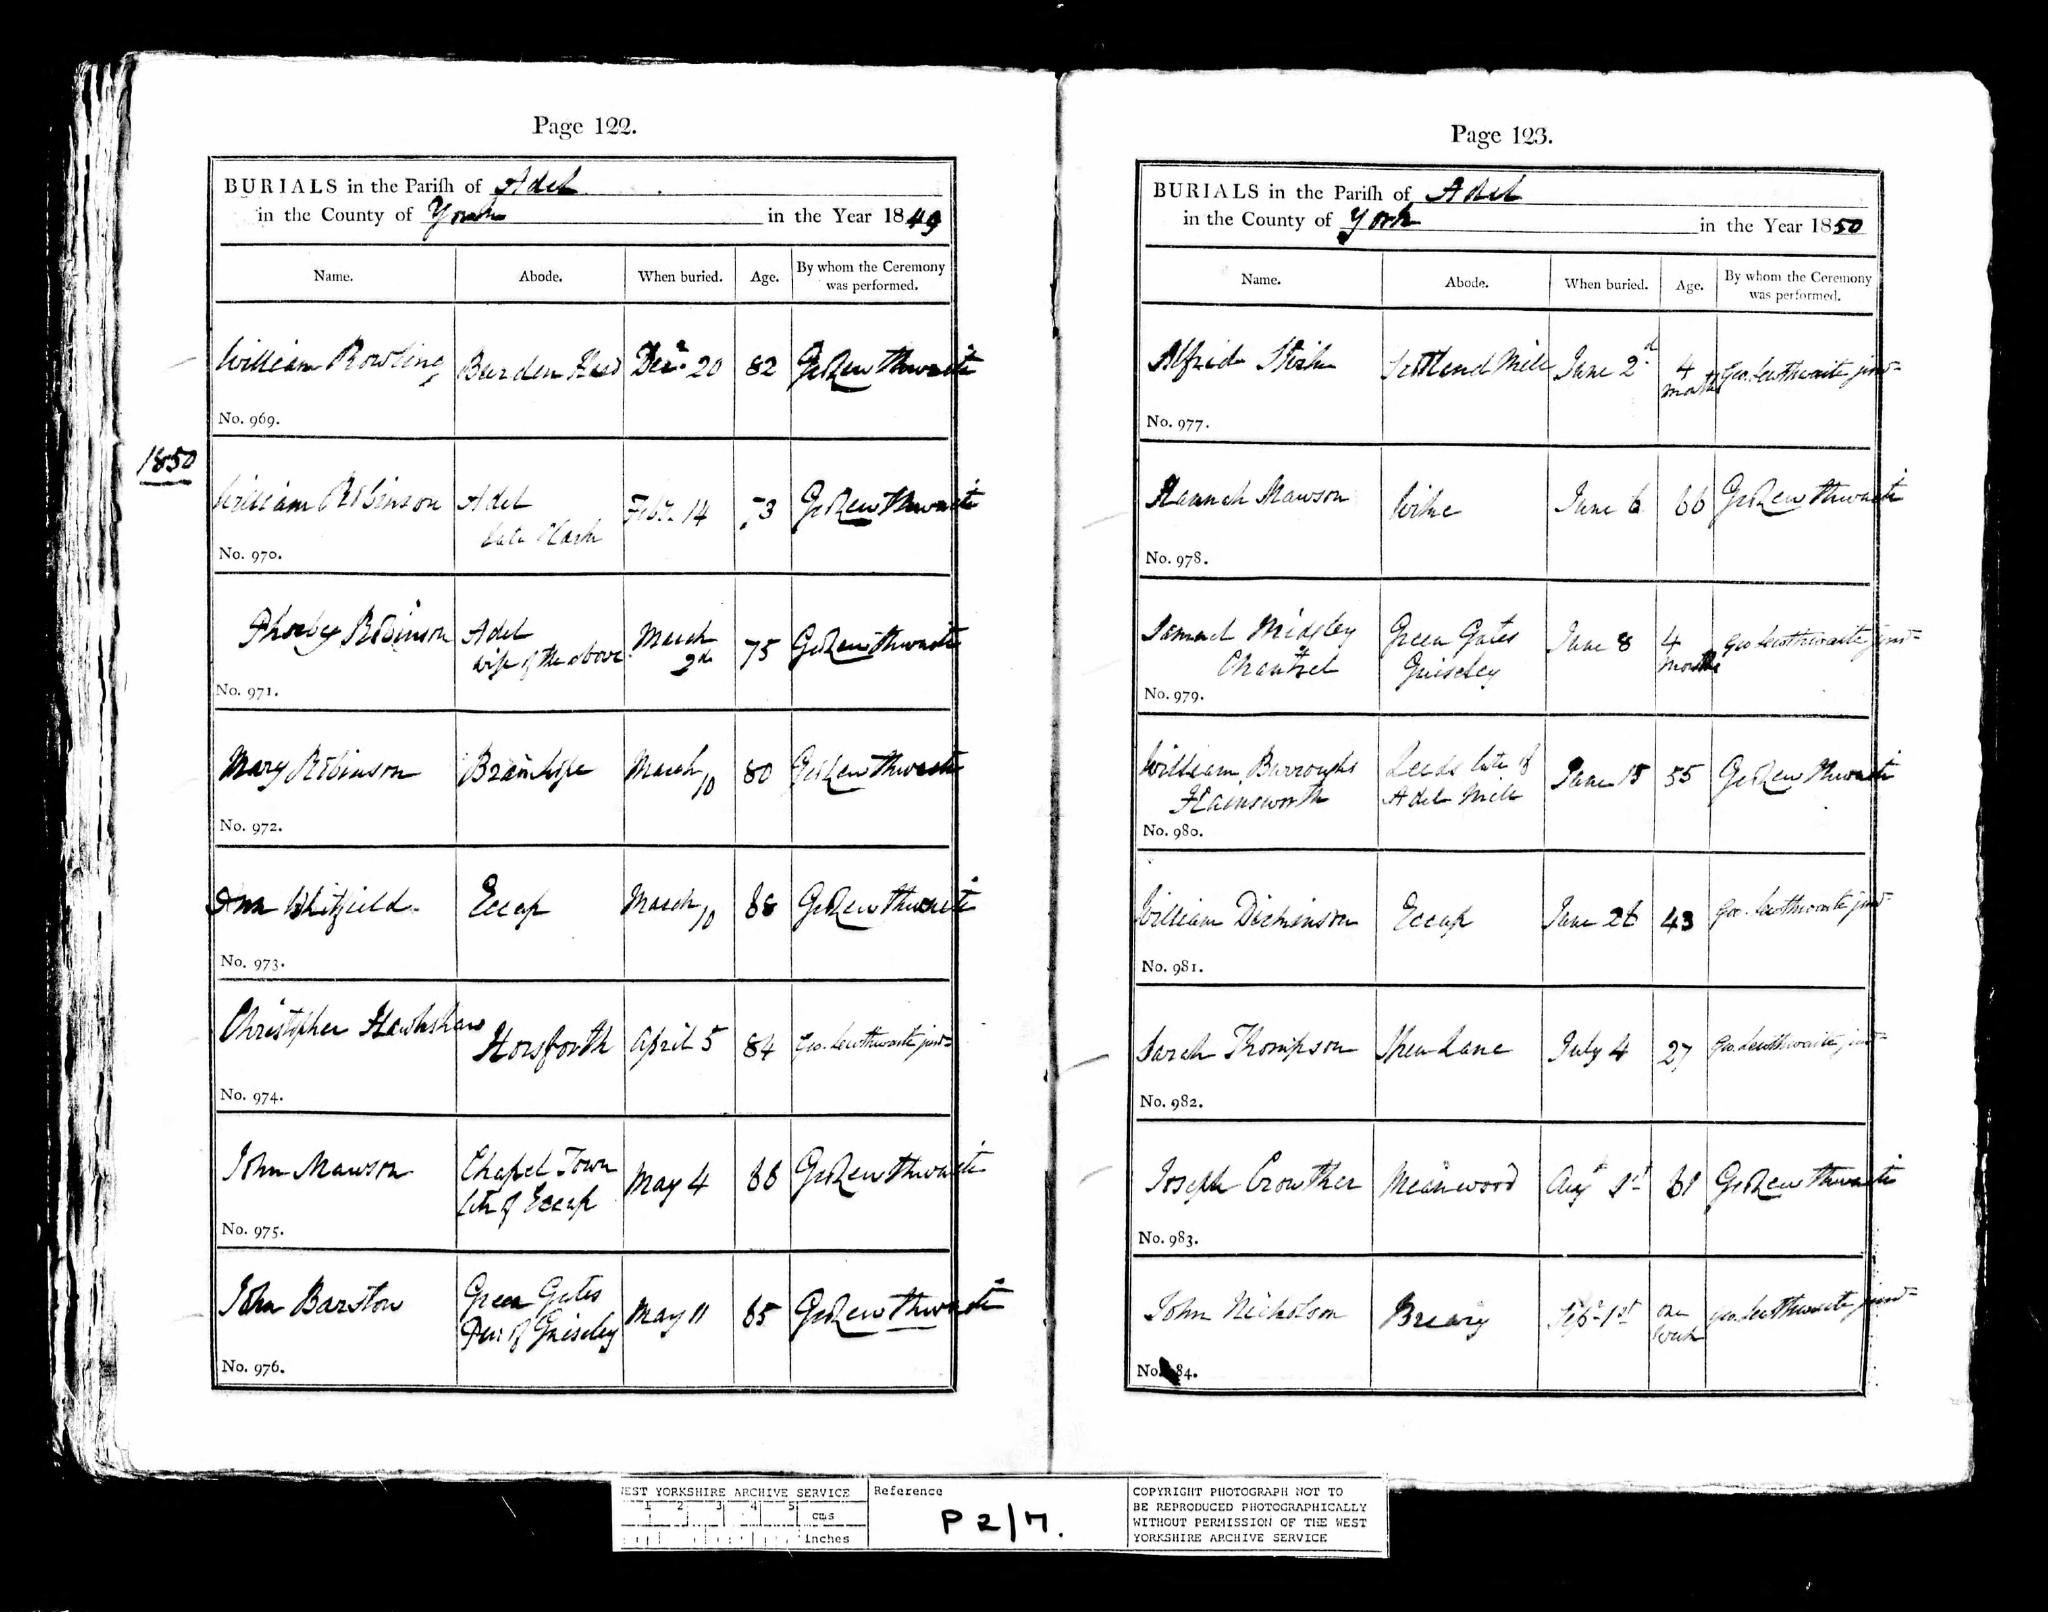 Page 122.
BURIALS in the Parish of Adel
in the County of York in the Year 1849
Name. Abode. When buried. Age. By whom the Ceremony was performed.
William Rowling Burden Head Decr. 20 82 Geo Lewthwaite
No. 969.
1850
William Robinson Adel Feby. 14 73 Geo Lewthwaite
late Clerk
No. 970.
Phoeby Robinson Adel March 75 Geo Lewthwaite
wife of the above 2d
No. 971.
Mary Robinson Bramhope March 10 80 Geo Lewthwaite
No. 972.
Ann Whitfield Eccup March 10 Geo Lewthwaite
No. 973.
Christopher Hawkshaw Horsforth April 5 84 Geo. Lewthwaite junr
No. 974.
John Mawson Chapel Town May 4 Geo Lewthwaite
late of Eccup
No. 975.
John Barstow Green Gates May 11 Geo Lewthwaite
Par of Guiseley
No. 976.
Page 123.
BURIALS in the Parish of Adel
in the County of York in the Year 1850
Name. Abode. When buried. Age. By whom the Ceremony was performed.
Alfred Stirk Scotland Mill June 2d 4 Geo. Lewthwaite junr
months
No. 977.
Hannah Mawson Wike June 6 66 Geo Lewthwaite
No. 978.
Samuel Midgley Green Gates June 8 4 Geo Lewthwaite junr
Guiseley months
No. 979.
William Burroughs Leeds late of June 18 55 Geo Lewthwaite
Hainsworth Adel Mill
No. 980.
William Dickinson Eccup June 26 43 Geo. Lewthwaite junr
No. 981.
Sarah Thompson Spen Lane July 4 27 Geo. Lewthwaite junr
No. 982.
Joseph Crowther Meanwood Augt 1st Geo Lewthwaite
No. 983.
John Nicholson Breary Sepr 1st one Geo. Lewthwaite junr
week
No. 84.
WEST YORKSHIRE ARCHIVE SERVICE
1 2 3 4 5 cms
inches
Reference
P 2/7.
COPYRIGHT PHOTOGRAPH NOT TO
BE REPRODUCED PHOTOGRAPHICALLY
WITHOUT PERMISSION OF THE WEST
YORKSHIRE ARCHIVE SERVICE